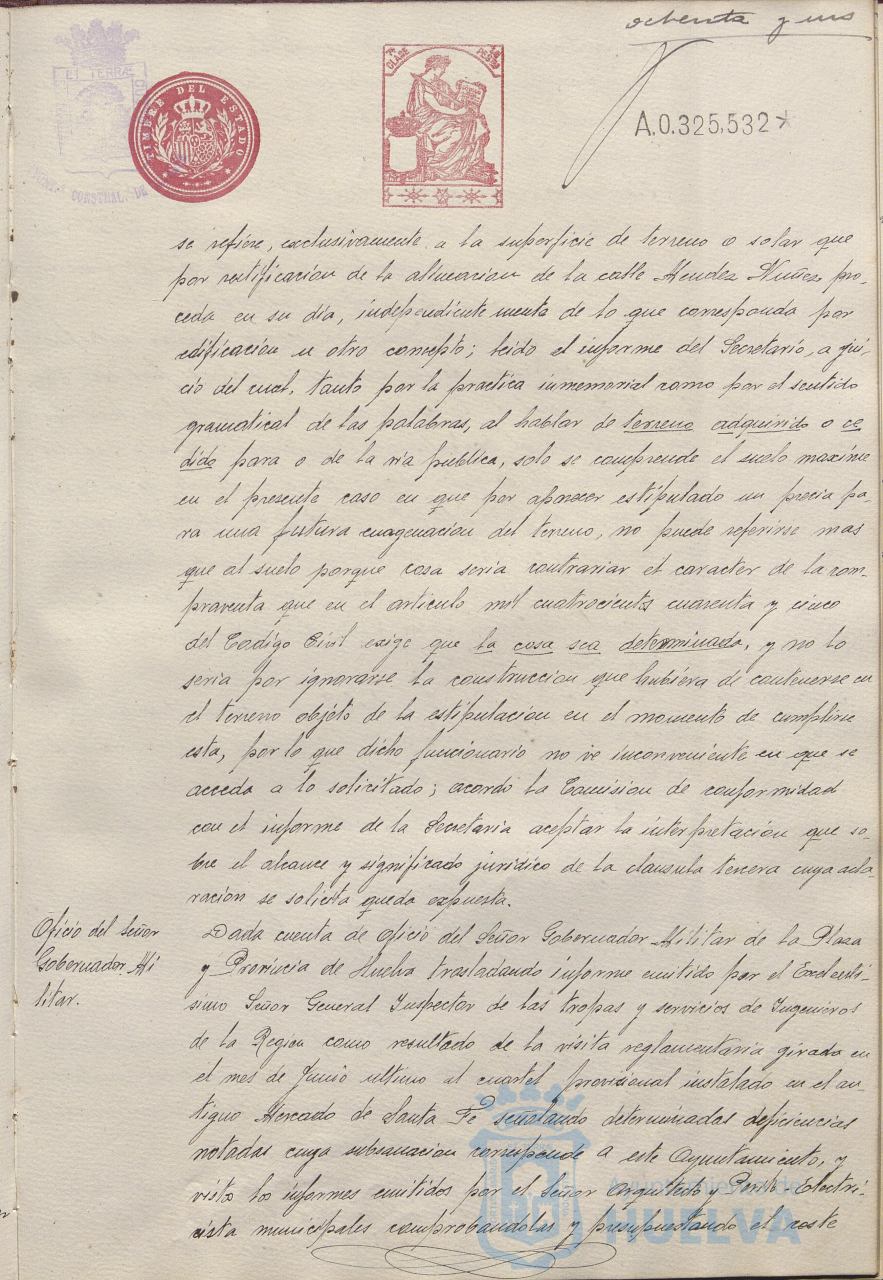 ochenta y uno
TIMBRE DEL ESTADO
7ª CLASE
PESETA
A.0.325,532*
CONSTNAL. DE
se refiere, exclusivamente a la superficie de terreno o solar que
por rectificacion de la alineacion de la calle Mendez Nuñez pro-
ceda en su dia, independientemente de lo que corresponda por
edificacion u otro concepto; leido el informe del Secretario, a jui-
cio del cual, tanto por la practica inmemorial como por el sentido
gramatical de las palabras, al hablar de terreno adquirido o ce
dido para o de la via publica, solo se comprende el suelo maxime
en el presente caso en que por aparecer estipulado un precio pa-
ra una futura enagenacion del terreno, no puede referirse mas
que al suelo porque cosa seria contrariar el caracter de la com-
praventa que en el articulo mil cuatrocientos cuarenta y cinco
del Codigo Civil exige que la cosa sea determinada, y no lo
seria por ignorarse la construccion que hubiera de contenerse en
el terreno objeto de la estipulacion en el momento de cumplirse
esta, por lo que dicho funcionario no ve inconveniente en que se
acceda a lo solicitado; acordo la Comision de conformidad
con el informe de la Secretaria aceptar la interpretacion que so-
bre el alcance y significado juridico de la clausula tercera cuya acla-
racion se solicita queda expuesta.
Oficio del Señor
Gobernador Mi
litar.
Dada cuenta de oficio del Señor Gobernador Militar de la Plaza
y Provincia de Huelva trasladando informe emitido por el Excelentí-
simo Señor General Inspector de las tropas y servicios de Ingenieros
de la Region como resultado de la visita reglamentaria girada en
el mes de Junio ultimo al cuartel provisional instalado en el an-
tiguo Mercado de Santa Fe señalando determinadas deficiencias
notadas cuya subsanacion corresponde a este Ayuntamiento, y
visto los informes emitidos por el Señor Arquitecto y Perito-Electri-
cista municipales comprobandolas y presupuestando el coste
Ayuntamiento de
HUELVA